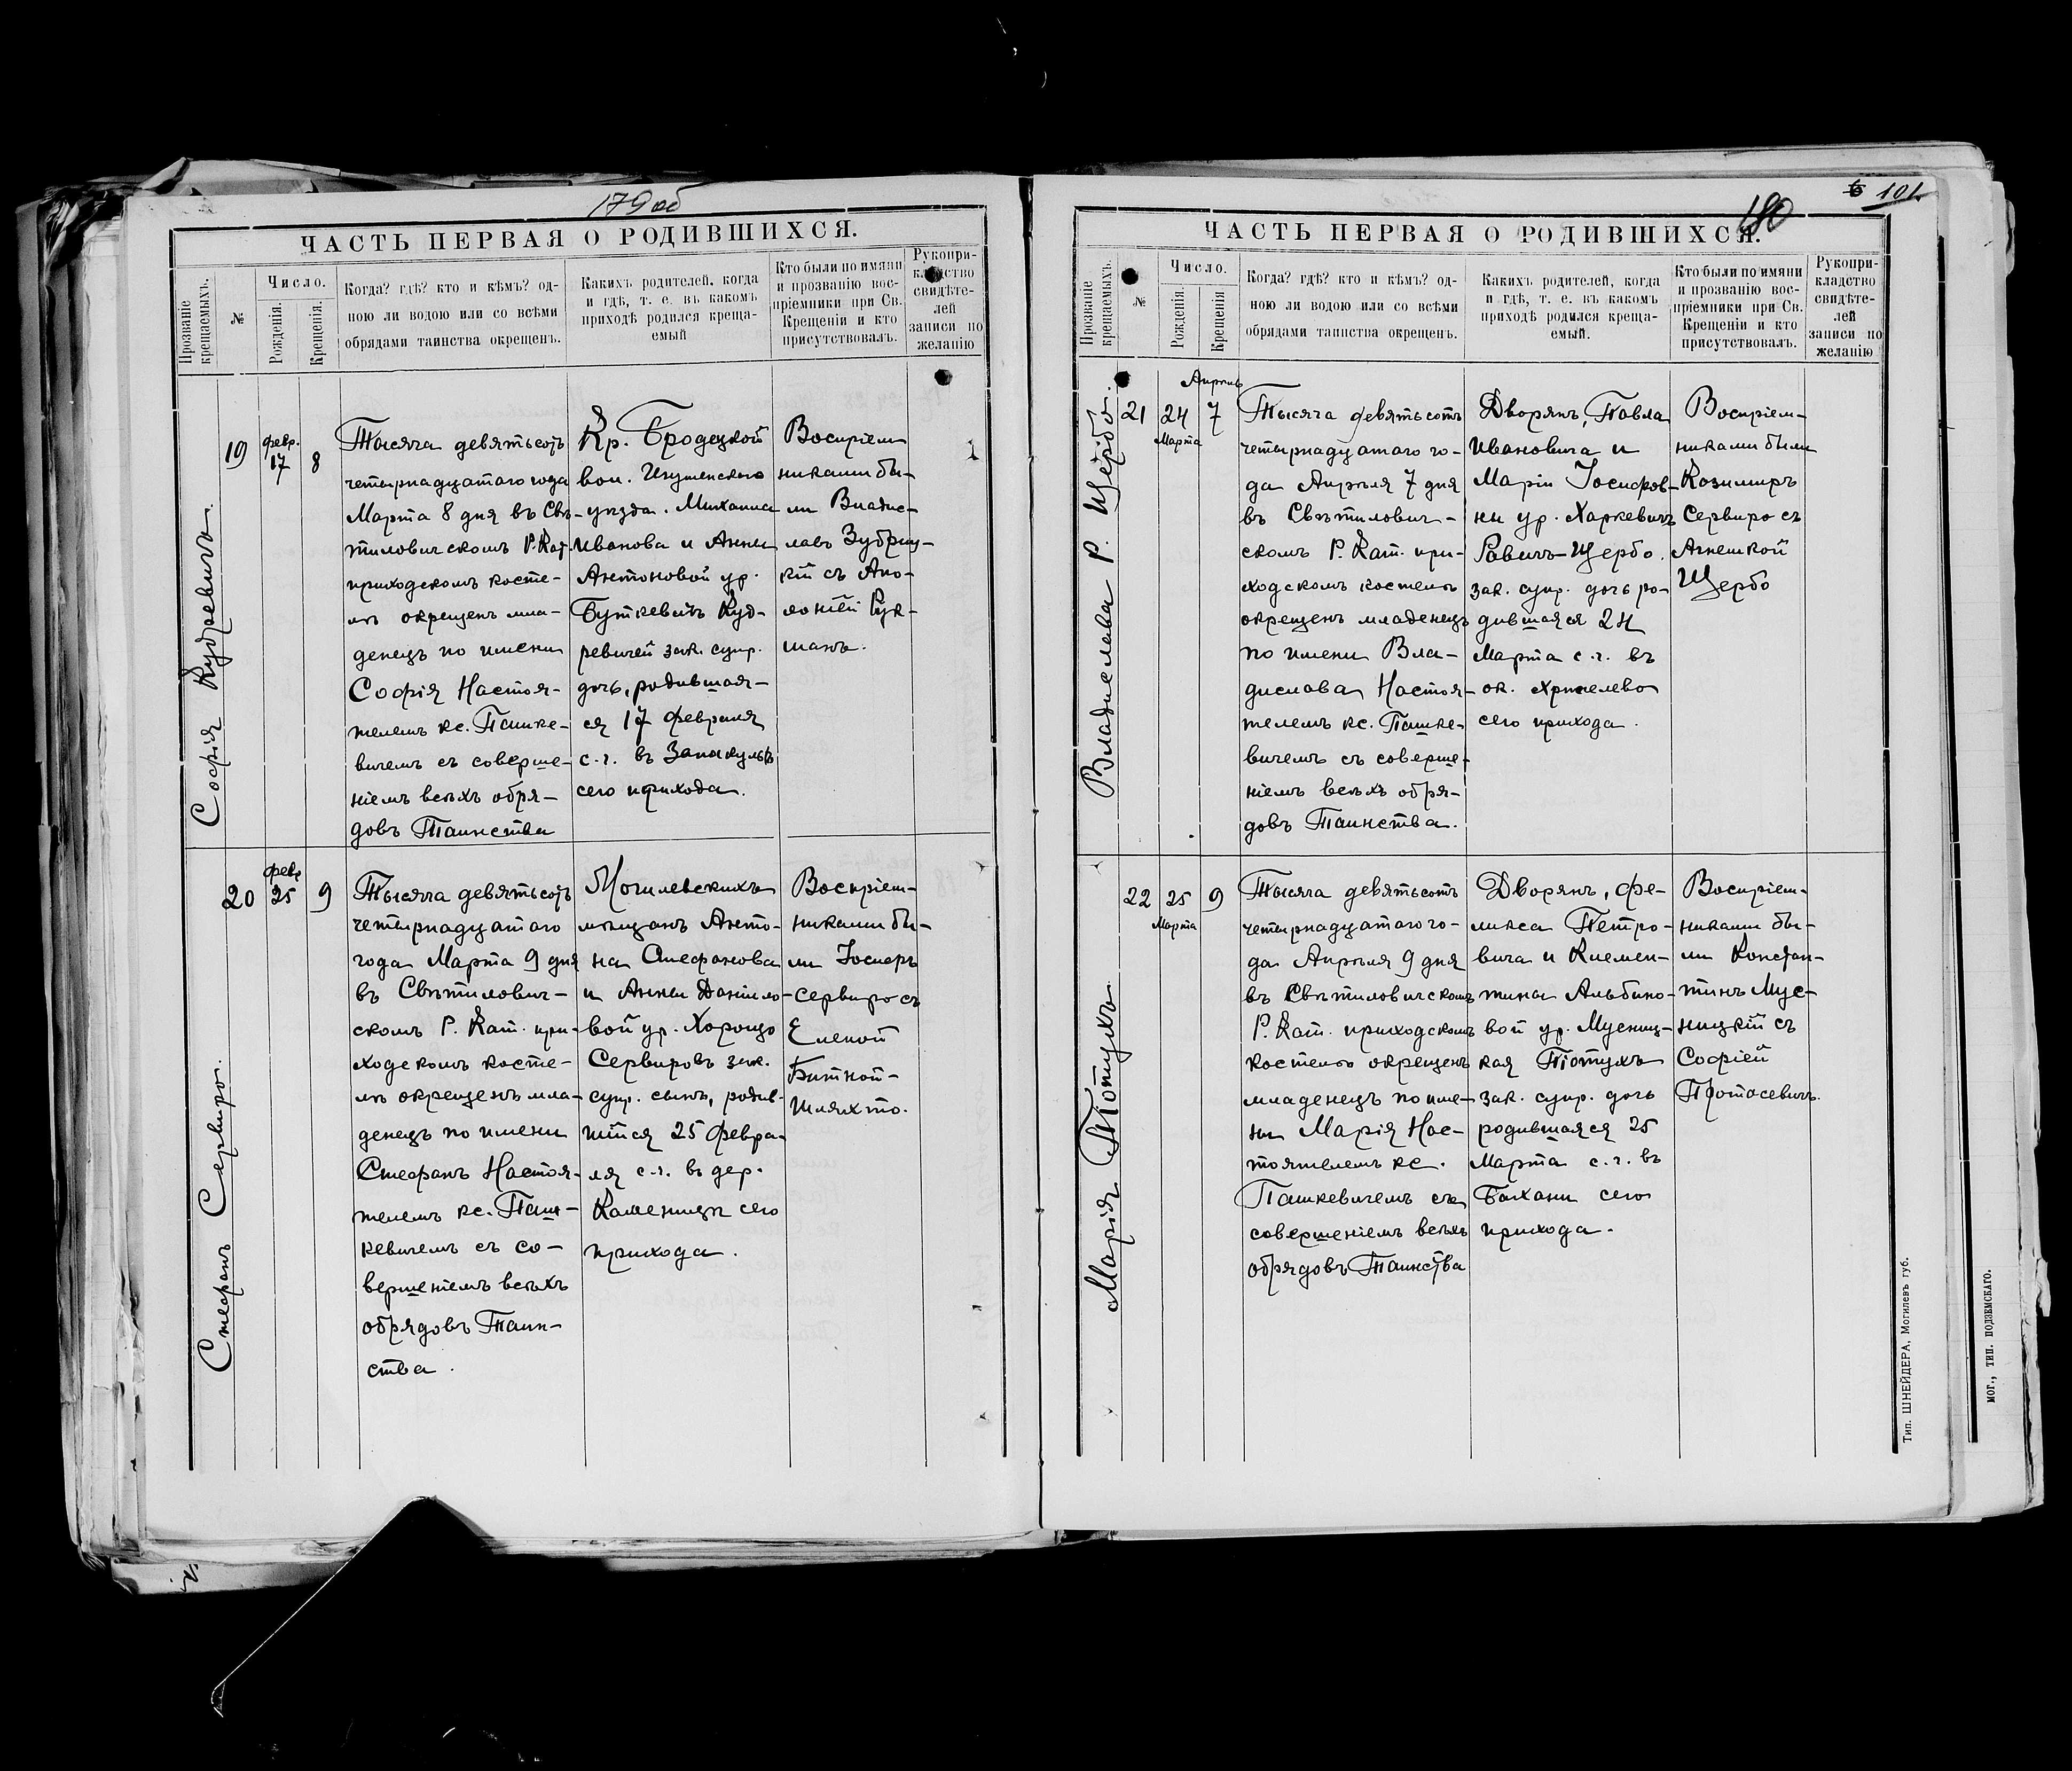 179 об
ЧАСТЬ ПЕРВАЯ О РОДИВШИХСЯ.
Прозваніе крещаемыхъ.
№
Число.
Рожденія.
Крещенія.
Когда? гдѣ? кто и кѣмъ? од-
ною ли водою или со всѣми
обрядами таинства окрещенъ.
Какихъ родителей, когда
и гдѣ, т. е. въ какомъ
приходѣ родился креща-
емый
Кто были по имяни
и прозванію вос-
пріемники при Св.
Крещеніи и кто
присутствовалъ.
Рукопри-
кладство
свидѣте-
лей
записи по
желанію
Софія Кудревичъ.
19
февр.
17
8
Тысяча девятьсотъ
четырнадцатаго года
Марта 8 дня въ Свѣ-
тиловичскомъ Р. Кат.
приходскомъ косте-
лѣ окрещенъ мла-
денецъ по имени
Софія Настоя-
телемъ кс. Пашке-
вичемъ съ соверше-
ніемъ всѣхъ обря-
довъ Таинства
Кр. Бродецкой
вол. Игуменскаго
уѣзда. Михаила
Иванова и Анны
Антоновой ур.
Буткевичъ Куд-
ревичей зак. супр.
дочь, родившая-
ся 17 февраля
с.г. въ
сего прихода.
Воспріем
никами бы-
ли Владис-
лавъ Зубриц-
кій съ Апо-
лоніей Рук-
шанъ.
Стефанъ Сервиро.
20
февр
25
9
Тысяча девятьсотъ
четырнадцатаго
года Марта 9 дня
въ Свѣтилович-
скомъ Р. Кат. при-
ходскомъ косте-
лѣ окрещенъ мла-
денецъ по имени
Стефанъ Настоя-
телемъ кс. Паш-
кевичемъ съ со-
вершеніемъ всѣхъ
обрядовъ Таин-
ства.
Могилевскихъ
мѣщанъ Анто-
на Стефанова
и Анны Данило-
вой ур. Хороцо
Сервировъ зак.
супр. сынъ, родив-
шійся 25 февра-
ля с.г. въ дер.
Каменицѣ сего
прихода.
Воспріем-
никами бы-
ли Іосифъ
Сервиро съ
Еленой
Битной-
Шляхто.
180
6 101.
ЧАСТЬ ПЕРВАЯ О РОДИВШИХСЯ.
Прозваніе крещаемыхъ.
№
Число.
Рожденія.
Крещенія
Когда? гдѣ? кто и кѣмъ? од-
ною ли водою или со всѣми
обрядами таинства окрещенъ.
Какихъ родителей, когда
и гдѣ, т. е. въ какомъ
приходѣ родился креща-
емый.
Кто были по имяни
и прозванію вос-
пріемники при Св.
Крещеніи и кто
присутствовалъ.
Рукопри-
кладство
свидѣте-
лей
записи по
желанію
Владислава Р. Щербо.
21
24
Марта
Апрѣль
7
Тысяча девятьсотъ
четырнадцатаго го-
да Апрѣля 7 дня
въ Свѣтилович-
скомъ Р. Кат. при-
ходскомъ костелѣ
окрещенъ младенецъ
по имени Вла-
дислава Настоя-
телемъ кс. Пашке-
вичемъ съ соверше-
ніемъ всѣхъ обря-
довъ Таинства.
Дворянъ, Павла
Ивановича и
Маріи Іосифов-
ны ур. Харкевичъ
Равичъ-Щербо.
зак. супр. дочь ро-
дившаяся 24
Марта с.г. въ
ок. Хрипелево
сего прихода.
Воспріем-
никами были
Казимиръ
Сервиро съ
Агнешкой
Щербо
Марія Потухъ
22
25
Марта
9
Тысяча девятьсотъ
четырнадцатаго го-
да Апрѣля 9 дня
въ Свѣтиловичскомъ
Р. Кат. приходскомъ
костелѣ окрещенъ
младенецъ по име-
ни Марія Нас-
тоятелемъ кс.
Пашкевичемъ съ
совершеніемъ всѣхъ
обрядовъ Таинства
Дворянъ, Фе-
ликса Петро-
вича и Клемен-
тины Альбино-
вой ур. Мусниц-
кая Потухъ
зак. супр. дочь
родившаяся 25
Марта с.г. въ
Бахани сего
прихода.
Воспріем-
никами бы-
ли Констан-
тинъ Мус-
ницкій съ
Софіей
Протасевичъ.
Тип. ШНЕЙДЕРА, Могилевъ губ.
МОГ., ТИП. ПОДЗЕМСКАГО.